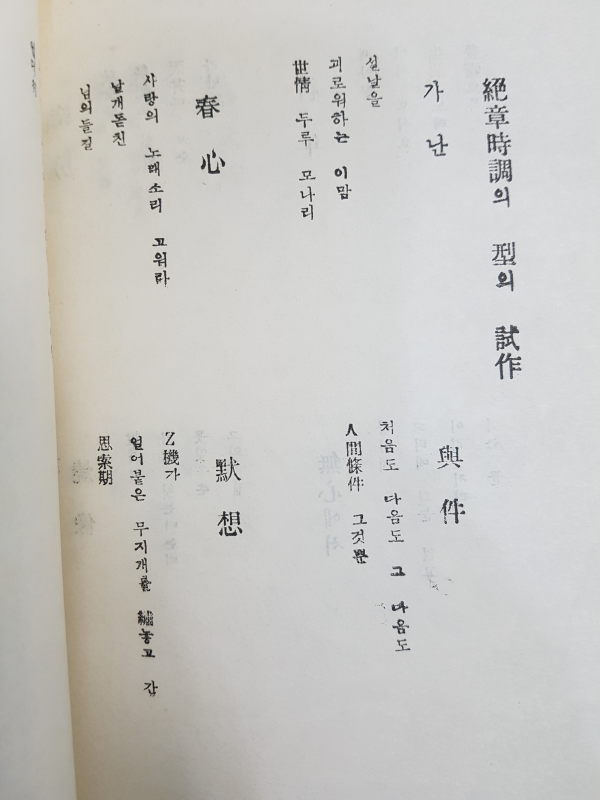 絕章時調의 型의 試作
가난
괴로워하는 이맘
世情 두루 모나리
春心
사랑의 노래소리 고워라
날개돋친
님의들길
與件
처음도 다음도 그 다음도
人間條件 그것뿐
默想
Z機가
얼어붙은 무지개를 繡놓고 감
思索期